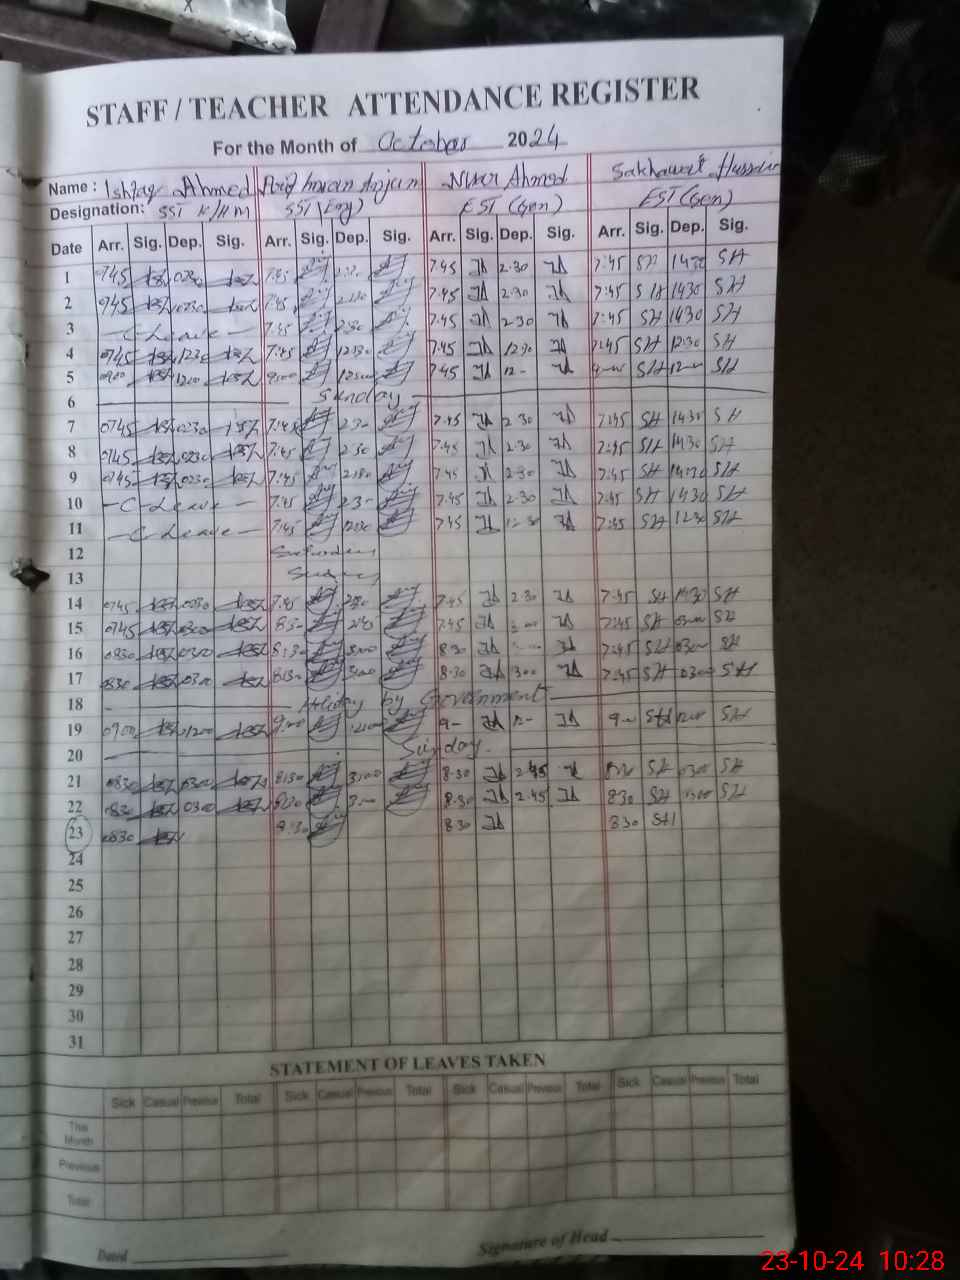 STAFF / TEACHER ATTENDANCE REGISTER
For the Month of October 2024
Name : Ishtaq Ahmed Arif Imran Anjum Nisar Ahmed Sakhawat Hussain
Designation: SST H/M SST (Eng) EST (Gen) EST (Gen)
Date Arr. Sig. Dep. Sig. Arr. Sig. Dep. Sig. Arr. Sig. Dep. Sig. Arr. Sig. Dep. Sig.
1 0745 0230 7:45 7:45 2:30 7:45 SH 1430 SH
2 0745 0230 7:45 7:45 2:30 7:45 SH 1430 SH
3 C Leave 7:45 2:30 7:45 2:30 7:45 SH 1430 SH
4 0745 1230 7:45 12:30 7:45 12:30 7:45 SH 1230 SH
5 0900 1200 9:00 12:00 7:45 12- SH SH
6 Sunday
7 0745 0230 7:45 2:30 7:45 2:30 7:45 SH 1430 SH
8 0745 0230 7:45 2:30 7:45 2:30 7:45 SH 1430 SH
9 0745 0230 7:45 2:30 7:45 2:30 7:45 SH 1430 SH
10 - C Leave - 7:45 7:45 2:30 7:45 SH 1430 SH
11 - C Leave - 7:45 7:45 12:30 7:45 SH 1230 SH
12 Saturday
13 Sunday
14 0745 0230 7:45 2:30 7:45 2:30 7:45 SH 1430 SH
15 0745 0300 8:30 7:45 7:45 SH 0300 SH
16 0830 0300 8:30 3:00 8:30 7:45 SH 0300 SH
17 0830 0300 8:30 3:00 8:30 300 7:45 SH 0300 SH
18 Holiday by Government
19 0900 1200 9:00 12:00 9- 12- SH SH
20 Sunday.
21 0830 0300 8:30 3:00 8:30 2:45 SH 0300 SH
22 0830 0300 8:30 8:30 2.45 830 SH 0300 SH
23 0830 8:30 8:30 830 SH
24
25
26
27
28
29
30
31
STATEMENT OF LEAVES TAKEN
Sick Casual Previous Total Sick Casual Previous Total Sick Casual Previous Total Sick Casual Previous Total
This Month
Previous
Total
Dated Signature of Head
23-10-24 10:28